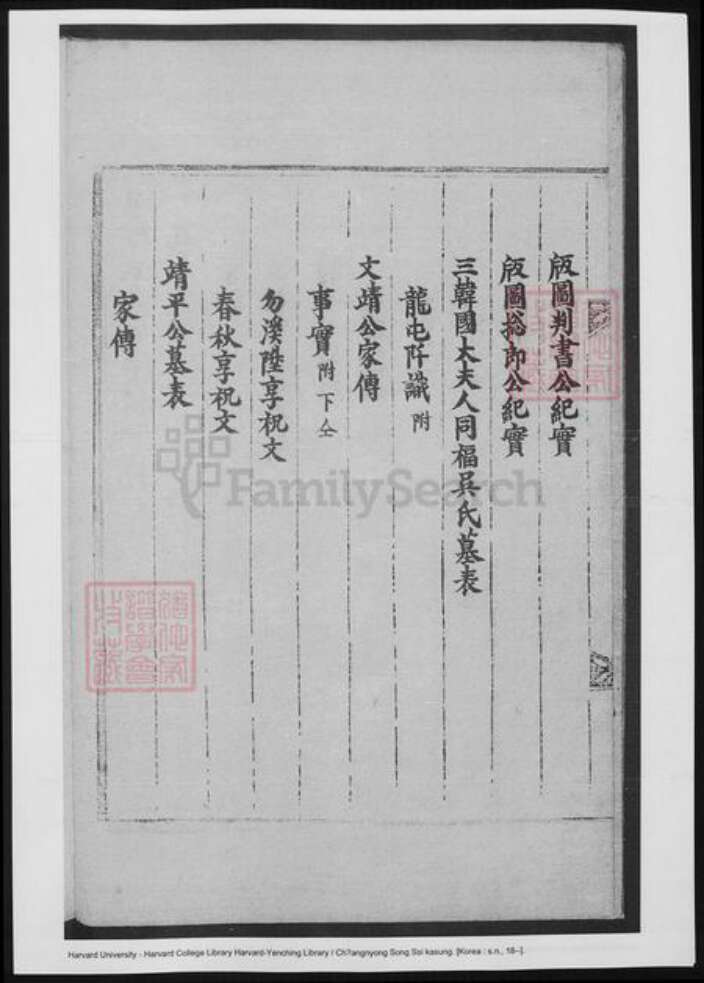 版圖判書公紀實
版圖摠郎公紀實
三韓國大夫人同福吳氏墓表
龍屯阡識附
文靖公家傳
事實附下仝
勿溪陞享祝文
春秋享祝文
靖平公墓表
家傳
FamilySearch
Harvard University - Harvard College Library Harvard-Yenching Library / Ch?angnyong Song Ssi kasung. [Korea : s.n., 18--].